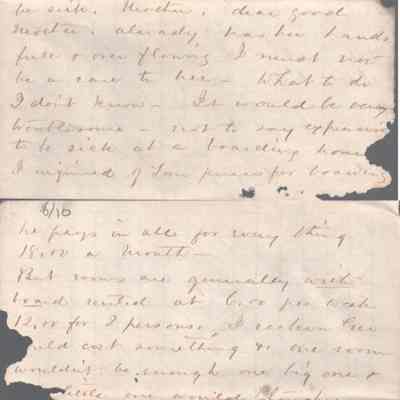 be sick. Mother, dear good
Mother, already has her hands
full & over flowing I must not
be a care to her - What to do
I don't know - It would be very
troublesome - not to say expensive
to be sick at a boarding house
I inquired of Lou prices for boarding
6/10
he pays in all for every thing
18.00 a Month -
But rooms are generally with
board rented at 6.00 per week
12.00 for 2 persons, I reckon
cost something & one room
wouldn't be enough one big one &
little one would